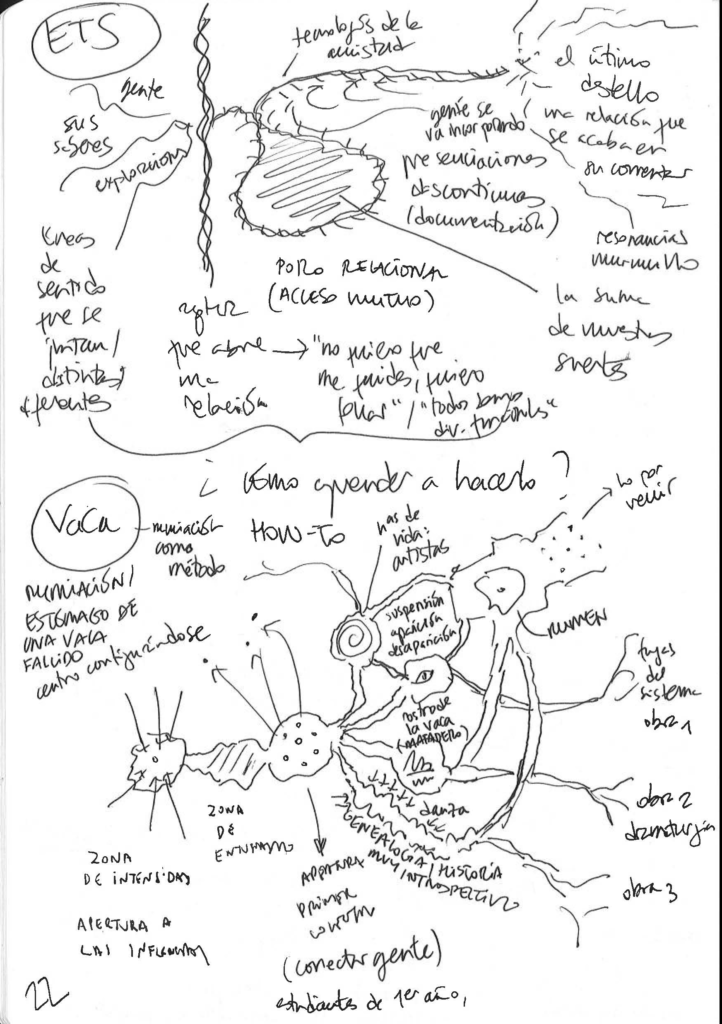 ETS
tecnologías de la
amistad
gente
sus
saberes
exploración
el último
destello
una relación que
se acaba en
su comenzar
gente se
va incorporando
presenciaciones
discontinuas
(documentación)
resonancias
murmullo
líneas
de
sentido
que se
juntan/
distintas/
diferentes
PORO RELACIONAL
(ACCESO MUTUO)
que abre
una
relación
"no quiero que
me cuides, quiero
follar" / "todos somos
div. funcionales"
la suma
de nuestras
suertes
¿cómo aprender a hacerlo?
HOW-TO
Vaca
rumiación
como
método
RUMIACIÓN/
ESTÓMAGO DE
UNA VACA
FALLIDO
centro configurándose
has de
vida:
artistas
lo por
venir
suspensión
aparición
desaparición
RUMEN
fugas
del
sistema
obra 1
rostro de
la vaca
(MATADERO)
danza
obra 2
dramaturgia
GENEALOGÍA / HISTORIA
MUY INTROSPECTIVO
obra 3
ZONA
DE
ENTUSIASMO
ZONA
DE INTENSIDAD
APERTURA A
LAS INFLUENCIAS
APERTURA
primer
(conectar gente)
estudiantes de 1er año,
22